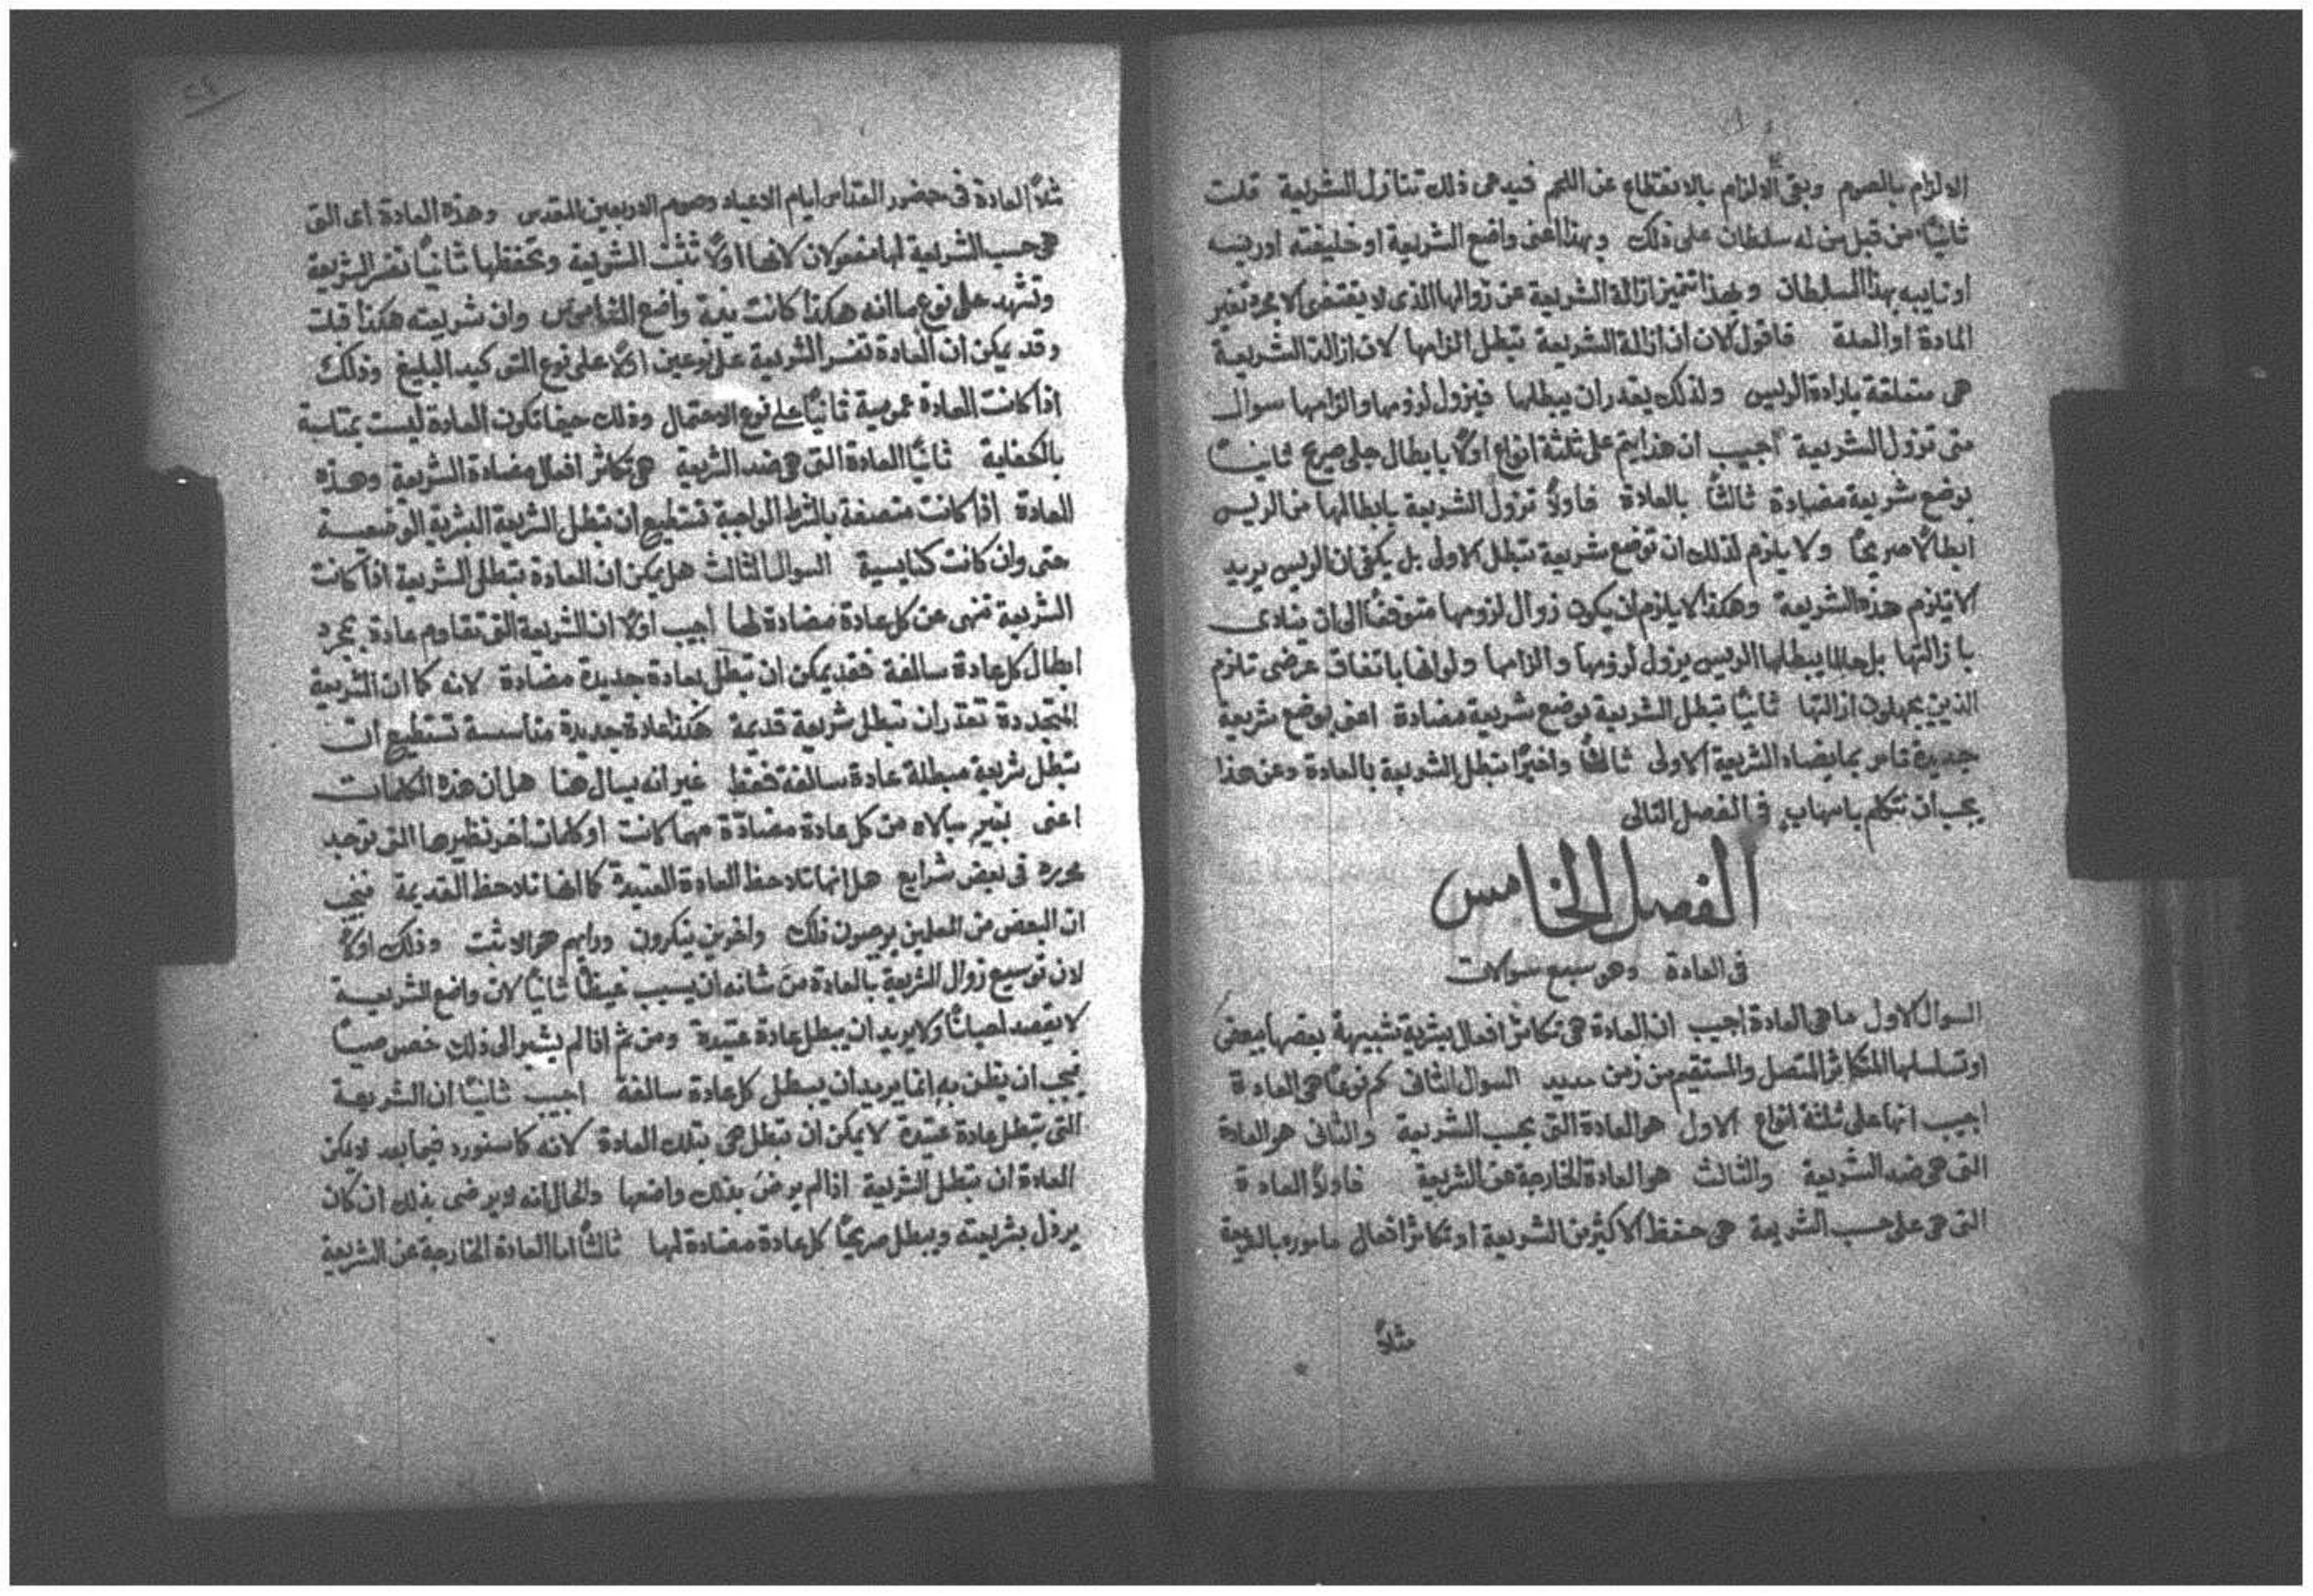 الالزام بالصوم وبقى الالزام بالانقطاع عن اللحم فيدعى ذلك تنازل الشريعة قلت
ثانيًا من قبل من له سلطان على ذلك وبهذا اعنى واضع الشريعة او خليفته او ريسه
او نايبه بهذا السلطان وبهذا تتميز ازالة الشريعة عن زوالها الذى لا يقتضى الا مجرد تغير
المادة او العلة فاقول الان ان ازالة الشريعة تبطل الزامها لان ازالة الشريعة
هى متعلقة بارادة الريس ولذلك يقدر ان يبطلها فيزول لزومها والزامها سوال
متى تزول الشريعة اجيب ان هذا يتم على ثلثة انواع اولًا بابطال جلى صريح ثانيًا
بوضع شريعة مضادة ثالثًا بالعادة فاولًا تزول الشريعة بابطالها من الريس
ابطالًا صريحًا ولا يلزم لذلك ان توضع شريعة تبطل الاولى بل يكفى ان الريس يريد
الا تلزم هذه الشريعة وهكذا لا يلزم ان يكون زوال لزومها متوقفًا الى ان ينادى
بازالتها بل حالما يبطلها الريس يزول لزومها والزامها ولو انها باتفاق عرضى تلزم
الذين يجهلون ازالتها ثانيًا تبطل الشريعة بوضع شريعة مضادة اعنى بوضع شريعة
جديدة تامر بما يضاد الشريعة الاولى ثالثًا واخيرًا تبطل الشريعة بالعادة وعن هذا
يجب أن نتكلم باسهاب فى الفصل التالى
الفصل الخامس
فى العادة وهو سبع سوالات
السوال الاول ما هى العادة اجيب ان العادة هى تكاثر افعال بشرية شبيهة بعضها ببعض
او تسلسلها المتكاثر المتصل والمستقيم من زمن مديد السوال الثانى كم نوعًا هى العادة
اجيب انها على ثلثة انواع الاول هو العادة التى بحسب الشريعة والثانى هو العادة
التى هى ضد الشريعة والثالث هو العادة الخارجة عن الشريعة فاولًا العادة
التى هى على حسب الشريعة هى حفظ الاكثرين الشريعة او تكاثر افعال مامورة بالشريعة
مثلًا
مثلًا العادة فى حضور القداس ايام الاعياد وصوم الاربعين المقدس وهذه العادة أى التى
هى حسب الشريعة لها مفعولان لانها اولًا تثبت الشريعة وتحفظها ثانيًا تفسر الشريعة
وتشهد على نوع ما انه هكذا كانت نية واضع الناموس وان شريعته هكذا قبلت
وقد يمكن أن العادة تفسر الشريعة على نوعين اولًا على نوع التوكيد البليغ وذلك
اذا كانت العادة عمومية ثانيًا على نوع الاحتمال وذلك حينما تكون العادة ليست بمتاسسة
بالكفاية ثانيًا العادة التى هى ضد الشريعة هى تكاثر افعال مضادة الشريعة وهذه
العادة اذا كانت متصفة بالشرط الواجبة تستطيع أن تبطل الشريعة البشرية الوضعية
حتى وان كانت كنايسية السوال الثالث هل يمكن ان العادة تبطل الشريعة اذا كانت
الشريعة تنهى عن كل عادة مضادة لها أجيب اولًا ان الشريعة التى تقاوم عادة بمجرد
ابطال كل عادة سالفة فقد يمكن ان تبطل بعادة جديدة مضادة لانه كما ان الشريعة
المتجددة تقدر أن تبطل شريعة قديمة هكذا عادة جديدة متأسسة تستطيع ان
تبطل شريعة مبطلة عادة سالفة فقط غير انه يسال هنا هل ان هذه الكلمات
اعنى بغير مبالاه من كل عادة مضادة مهما كانت او كلمات أخر نظيرها التى توجد
محررة فى بعض شرايع هل انها تلاحظ العادة العتيدة كما انها تلاحظ القديمة فنجيب
ان البعض من المعلمين يوجبون ذلك وآخرين ينكرون ورايهم هو الاثبت وذلك اولًا
لان توسيع زوال الشريعة بالعادة من شانه ان يسبب غيظًا ثانيًا لان واضع الشريعة
لا يقصد احيانًا ولا يريد ان يبطل عادة عتيدة ومن ثم اذا لم يشير الى ذلك خصوصيًا
فيجب ان يظن به انما يريد أن يبطل كل عادة سالفة اجيب ثانيًا أن الشريعة
التى تبطل عادة عتيدة لا يمكن ان تبطل هى بتلك العادة لانه كما سنورد فيما بعد لا يمكن
العادة ان تبطل الشريعة اذا لم يرض بذلك واضعها والحال انه لا يرضى بذلك ان كان
يرذل بشريعته ويبطل صريحًا كل عادة مضادة لها ثالثًا اما العادة الخارجة عن الشريعة